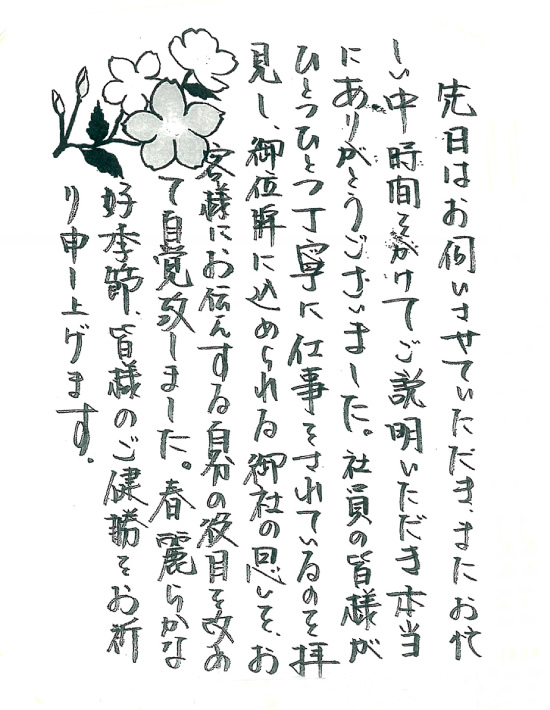 先日はお伺いさせていただき、またお忙
しい中時間をかけてご説明いただき本当
にありがとうございました。社員の皆様が
ひとつひとつ丁寧に仕事をされているのを拝
見し、御位牌に込められる御社の思いを、お
客様にお伝えする自分の役目を改め
て自覚致しました。春麗らかな
好季節、皆様のご健勝をお祈
り申し上げます。